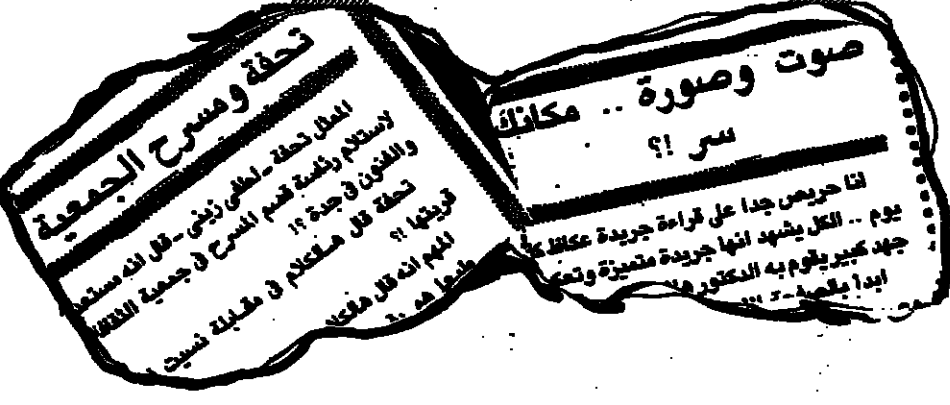 صوت وصورة .. مكانك
سر !؟
انا حريص جدا على قراءة جريدة عكاظ
يوم .. الكل يشهد انها جريدة متميزة
جهد كبير يقوم به الدكتور
ابدأ
تحفة ومسرح الجمعية
الممثل تحفة - لطفي زيني - قال انه
لاستلام رئاسة قسم المسرح في جمعية الثقافة
والفنون في جدة ؟!
تحفة قال هالكلام في مقابلة نسيت
قريتها !؟
المهم انه قال